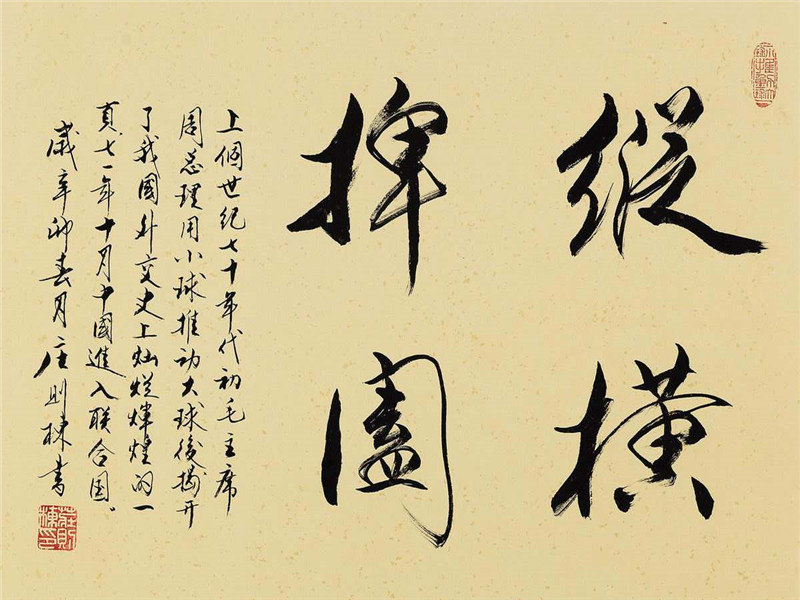 縱橫
捭闔
上個世紀七十年代初毛主席
周总理用小球推动大球後揭开
了我國外交史上灿烂煇煌的一
頁七一年十月中國進入联合国。
歲辛卯春月庄则棟書
莊則棟印